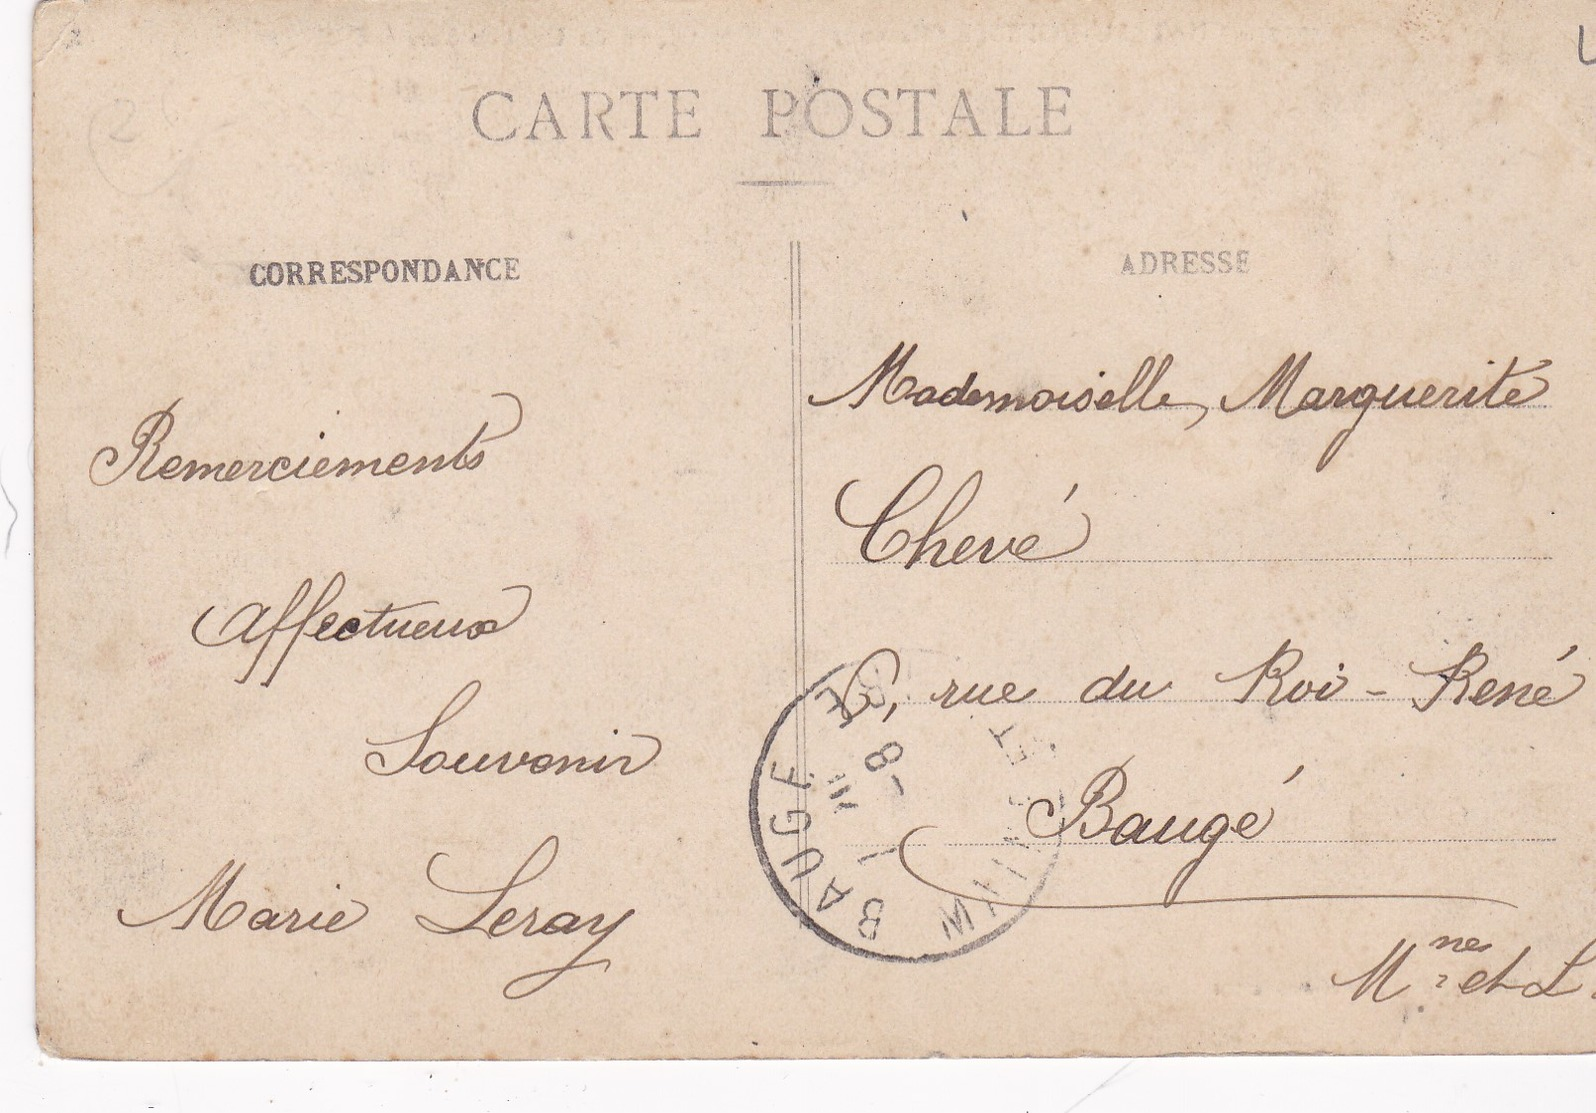 CARTE POSTALE
CORRESPONDANCE
Remerciements
Affectueux
Souvenir
Marie Leray
ADRESSE
Mademoiselle, Marguerite
Chevé
rue du Roi-René
Baugé
Mne et L.
BAUGE
MAINE ET
2